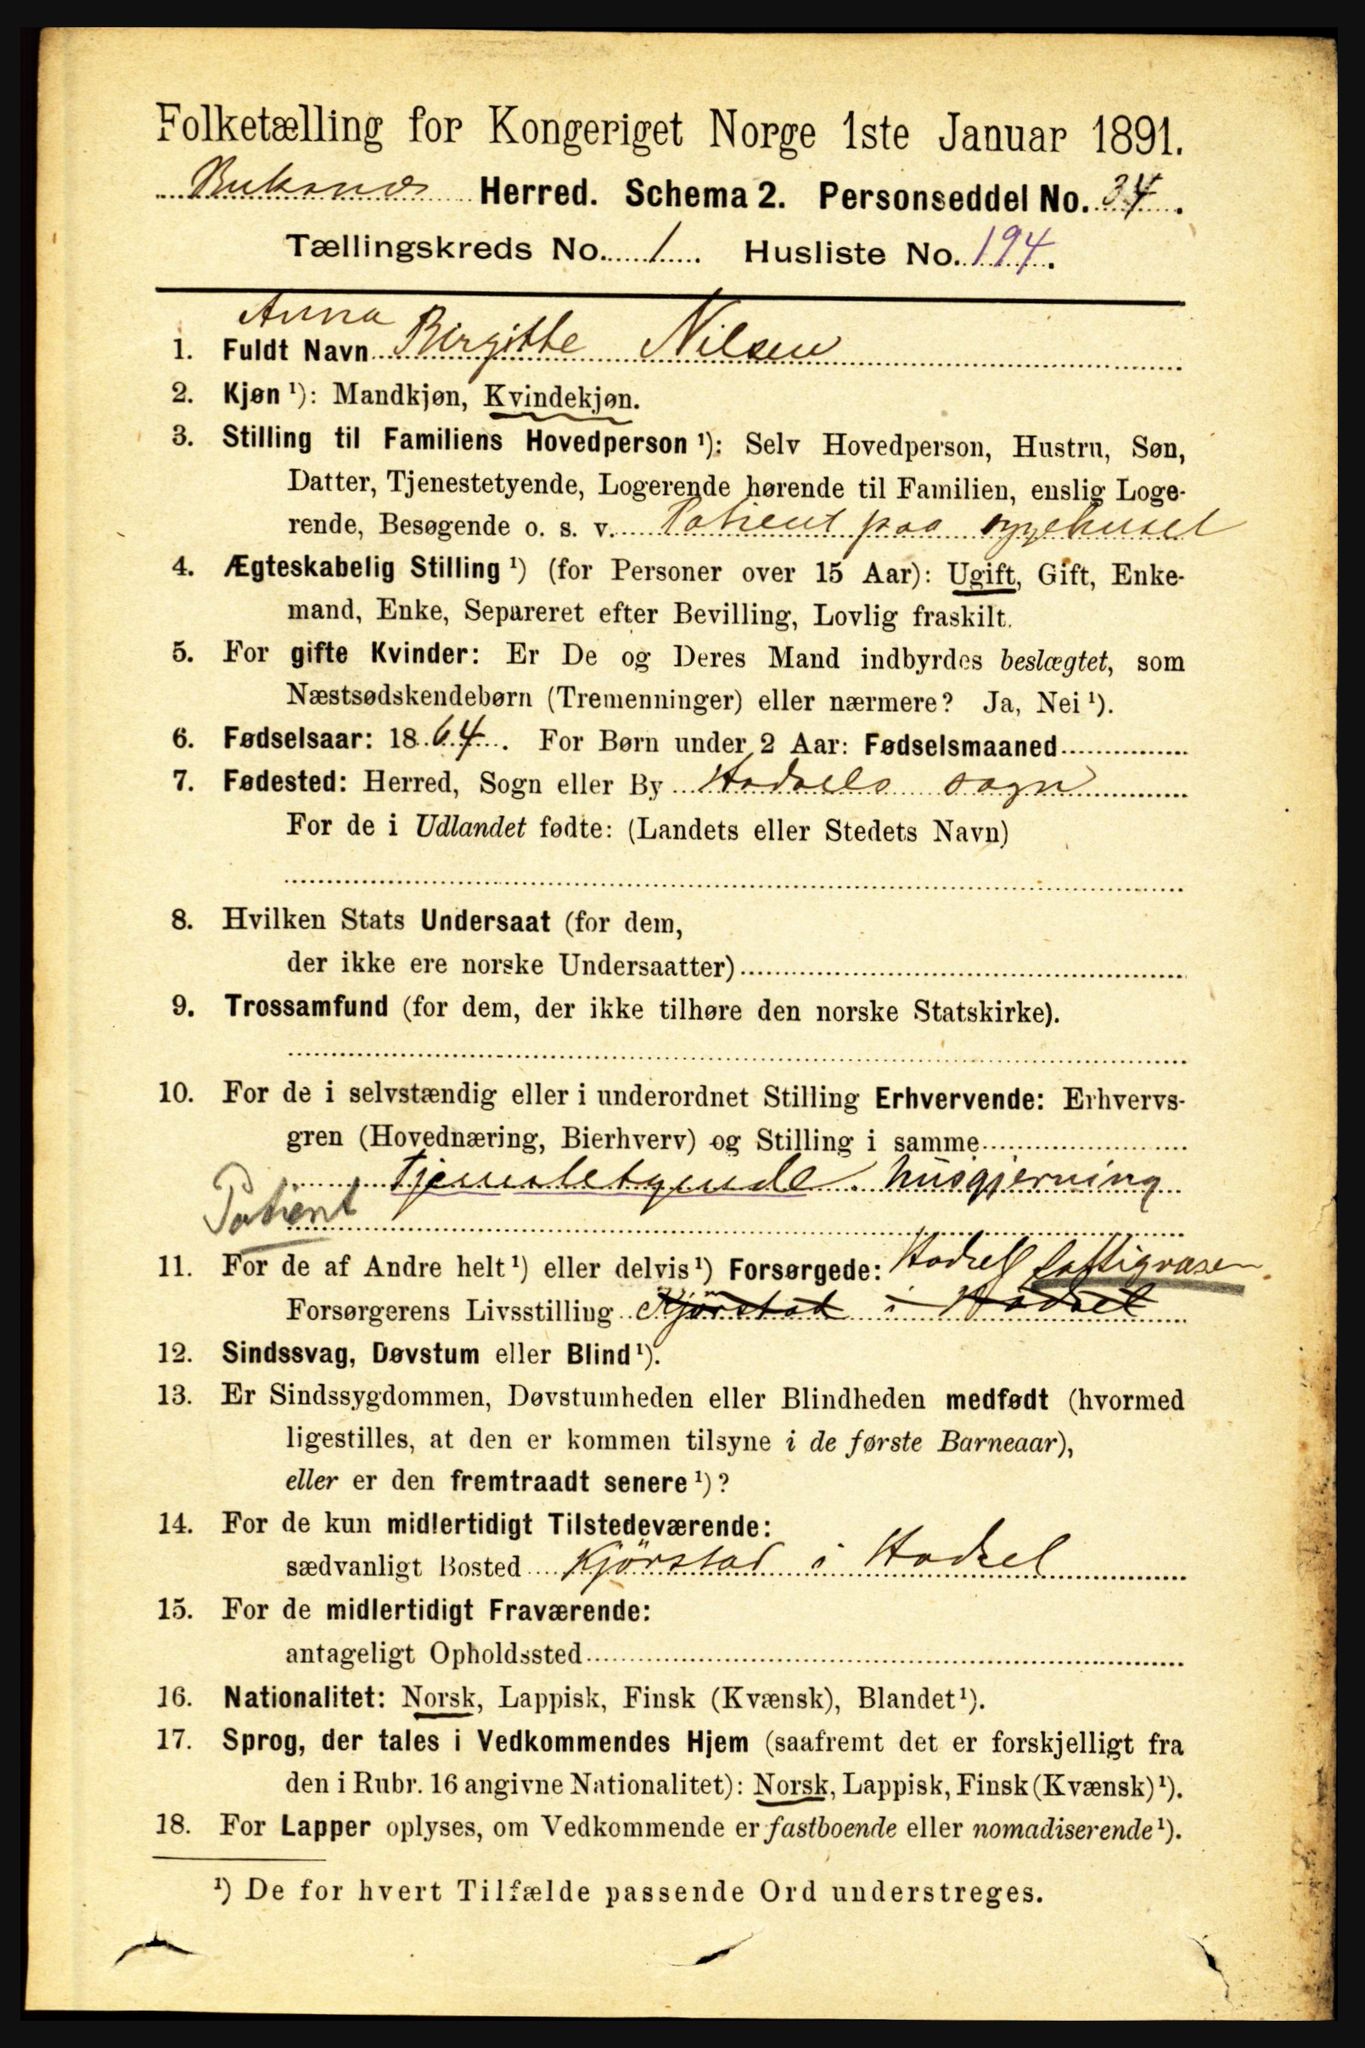 Folketælling for Kongeriget Norge 1ste Januar 1891.
Buksnes Herred. Schema 2. Personseddel No. 34.
Tællingskreds No. 1. Husliste No. 194.
Anna
1. Fuldt Navn Birgitte Nilsen
2. Kjøn ¹): Mandkjøn, Kvindekjøn.
3. Stilling til Familiens Hovedperson ¹): Selv Hovedperson, Hustru, Søn,
Datter, Tjenestetyende, Logerende hørende til Familien, enslig Loge-
rende, Besøgende o. s. v. Patient paa sygehuset
4. Ægteskabelig Stilling ¹) (for Personer over 15 Aar): Ugift, Gift, Enke-
mand, Enke, Separeret efter Bevilling, Lovlig fraskilt.
5. For gifte Kvinder: Er De og Deres Mand indbyrdes beslægtet, som
Næstsødskendebørn (Tremenninger) eller nærmere? Ja, Nei ¹).
6. Fødselsaar: 1864. For Børn under 2 Aar: Fødselsmaaned
7. Fødested: Herred, Sogn eller By Hadsels sogn
For de i Udlandet fødte: (Landets eller Stedets Navn)
8. Hvilken Stats Undersaat (for dem,
der ikke ere norske Undersaatter)
9. Trossamfund (for dem, der ikke tilhøre den norske Statskirke).
10. For de i selvstændig eller i underordnet Stilling Erhvervende: Erhvervs-
gren (Hovednæring, Bierhverv) og Stilling i samme
Tjenestetyende. husgjerning
Patient
11. For de af Andre helt ¹) eller delvis ¹) Forsørgede: Hadsel fattigvæsen.
Forsørgerens Livsstilling Kjörstad i Hadsel
12. Sindssvag, Døvstum eller Blind ¹).
13. Er Sindssygdommen, Døvstumheden eller Blindheden medfødt (hvormed
ligestilles, at den er kommen tilsyne i de første Barneaar),
eller er den fremtraadt senere ¹)?
14. For de kun midlertidigt Tilstedeværende:
sædvanligt Bosted Kjörstad i Hadsel
15. For de midlertidigt Fraværende:
antageligt Opholdssted
16. Nationalitet: Norsk, Lappisk, Finsk (Kvænsk), Blandet ¹).
17. Sprog, der tales i Vedkommendes Hjem (saafremt det er forskjelligt fra
den i Rubr. 16 angivne Nationalitet): Norsk, Lappisk, Finsk (Kvænsk) ¹).
18. For Lapper oplyses, om Vedkommende er fastboende eller nomadiserende ¹).
¹) De for hvert Tilfælde passende Ord understreges.